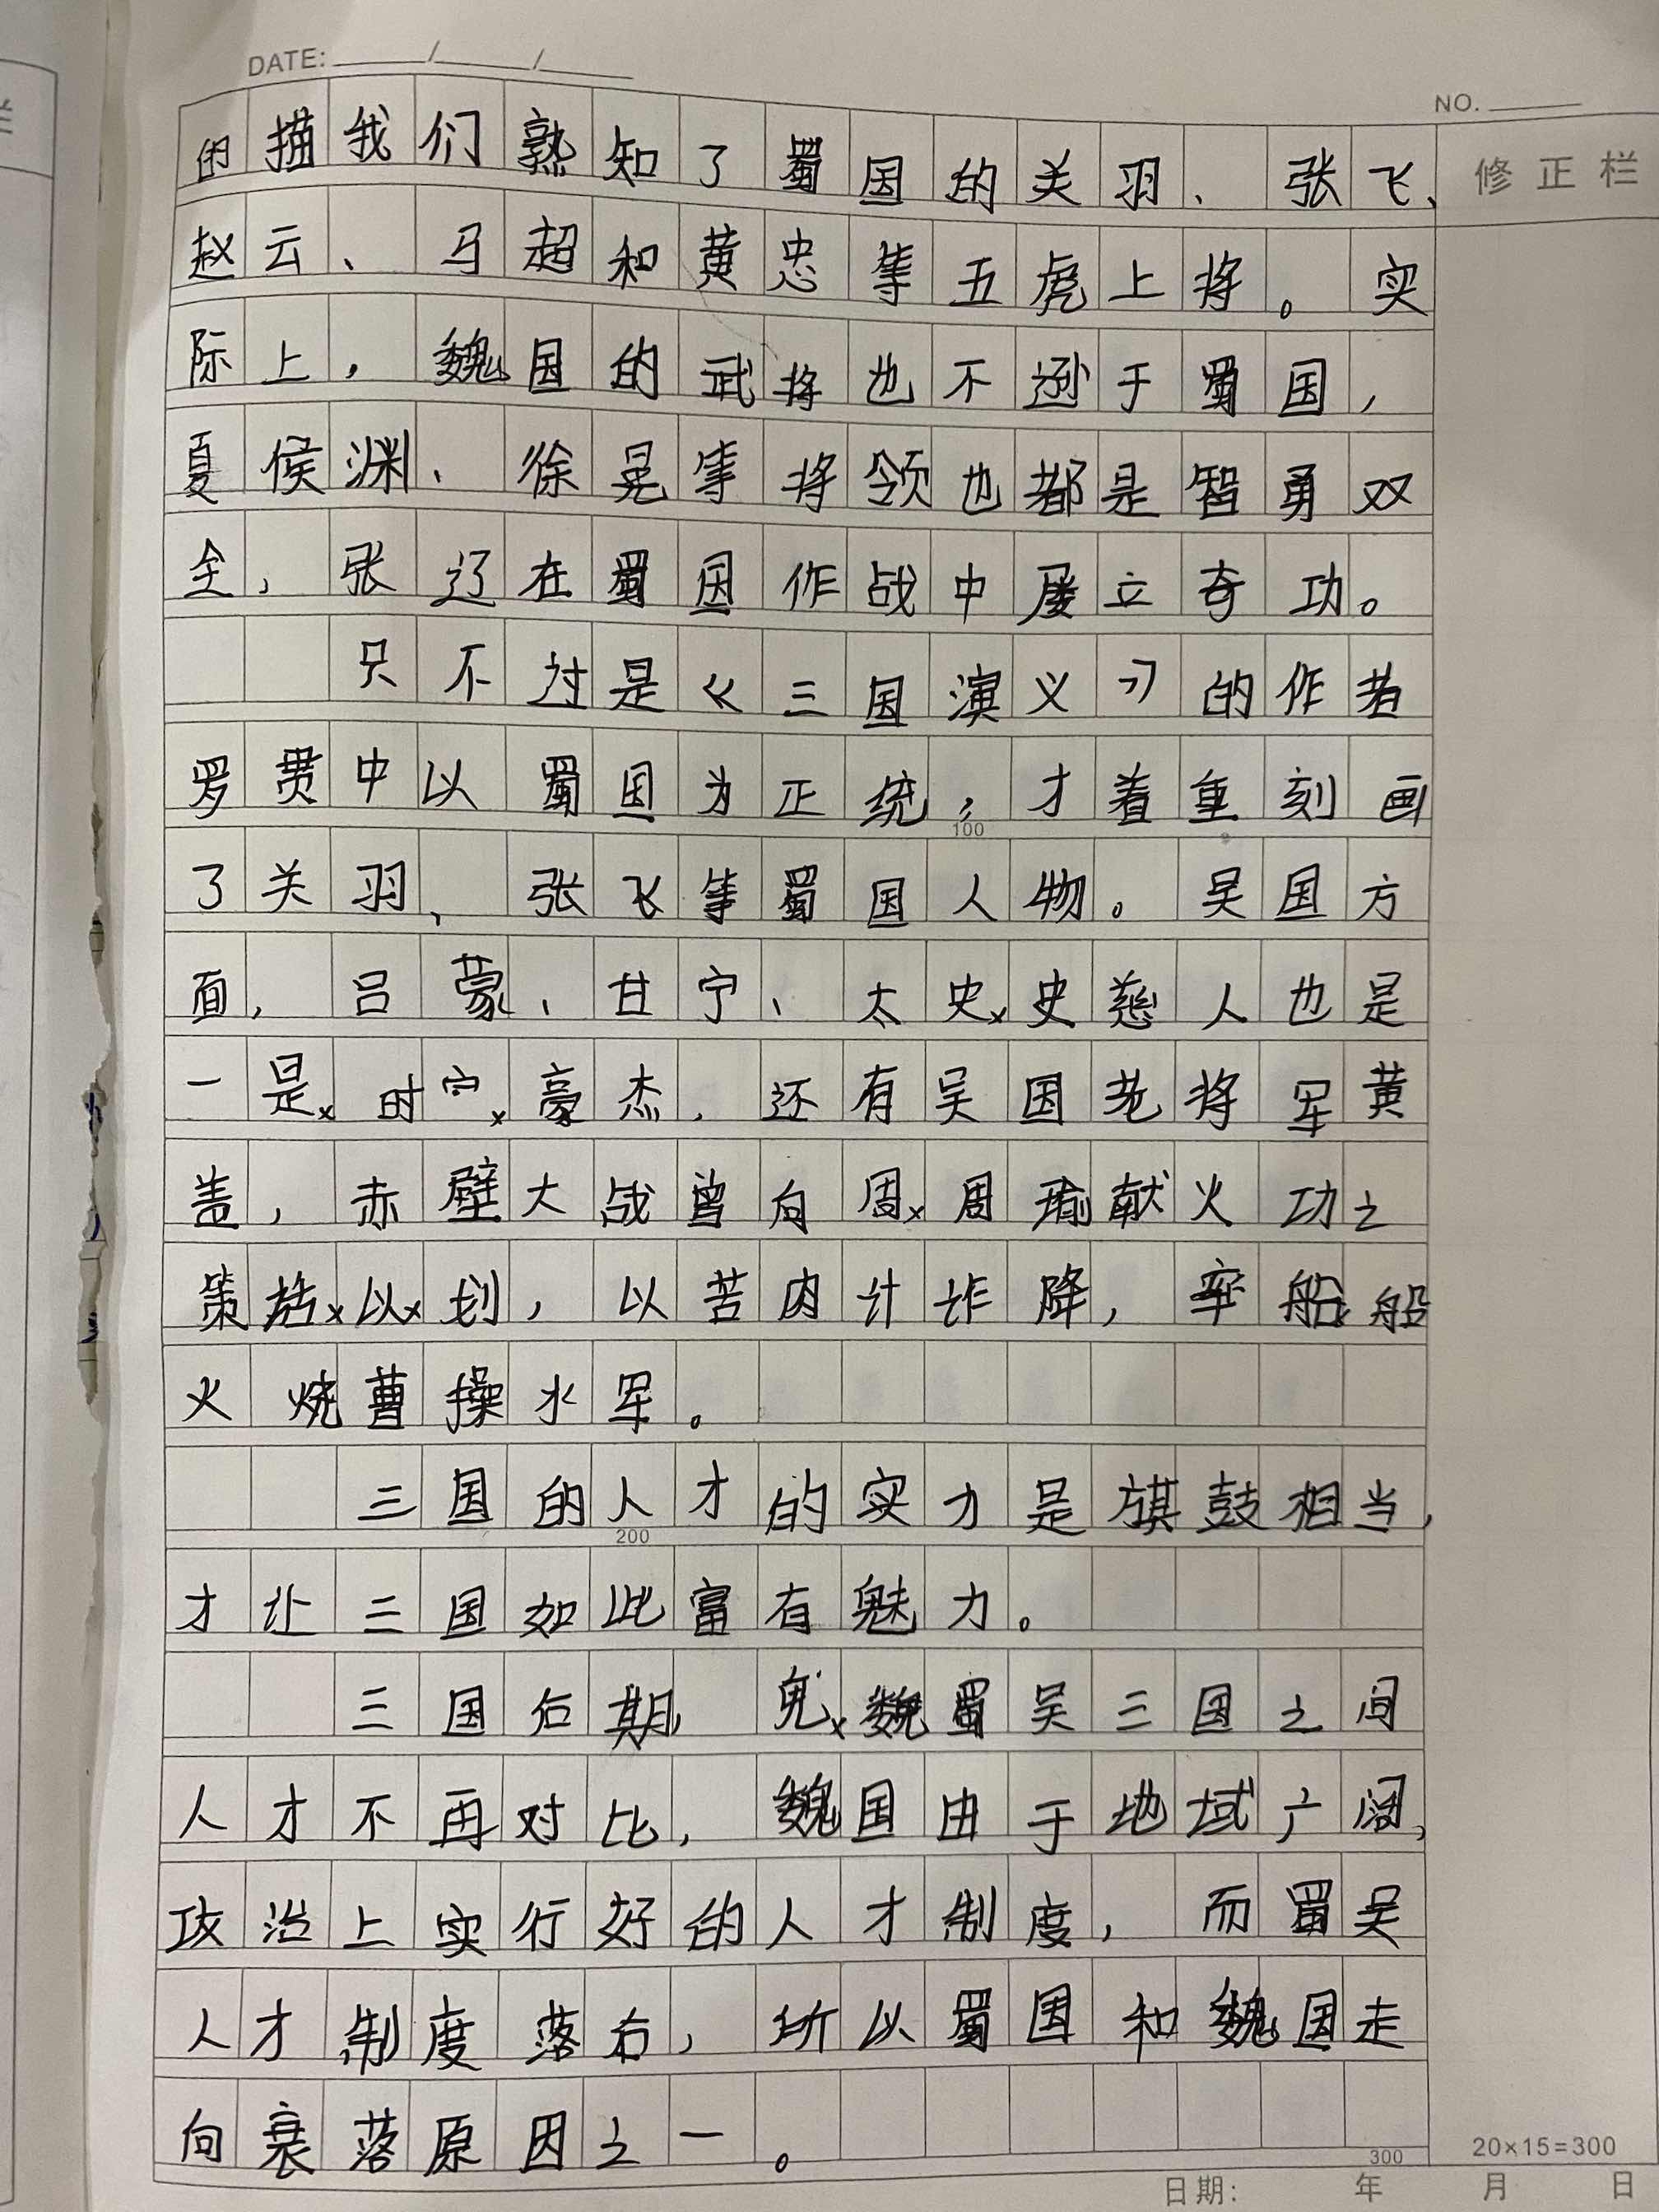 DATE: / /
NO.
修正栏
的描我们熟知了蜀国的关羽、张飞、
赵云、马超和黄忠等五虎上将。实
际上，魏国的武将也不逊于蜀国，
夏侯渊、徐晃等将领也都是智勇双
全，张辽在蜀国作战中屡立奇功。
只不过是《三国演义》的作者
罗贯中以蜀国为正统，才着重刻画
100
了关羽、张飞等蜀国人物。吴国方
面，吕蒙、甘宁、太史史慈人也是
一是时豪杰，还有吴国老将军黄
盖，赤壁大战曾向周周瑜献火功之
策以划，以苦肉计诈降，率船船
火烧曹操水军。
三国的人才的实力是旗鼓相当，
200
才让三国如此富有魅力。
三国后期 魏蜀吴三国之间
人才不再对比，魏国由于地域广阔，
政治上实行好的人才制度，而蜀吴
人才制度落后，所以蜀国和魏国走
向衰落原因之一。
300
20×15=300
日期： 年 月 日